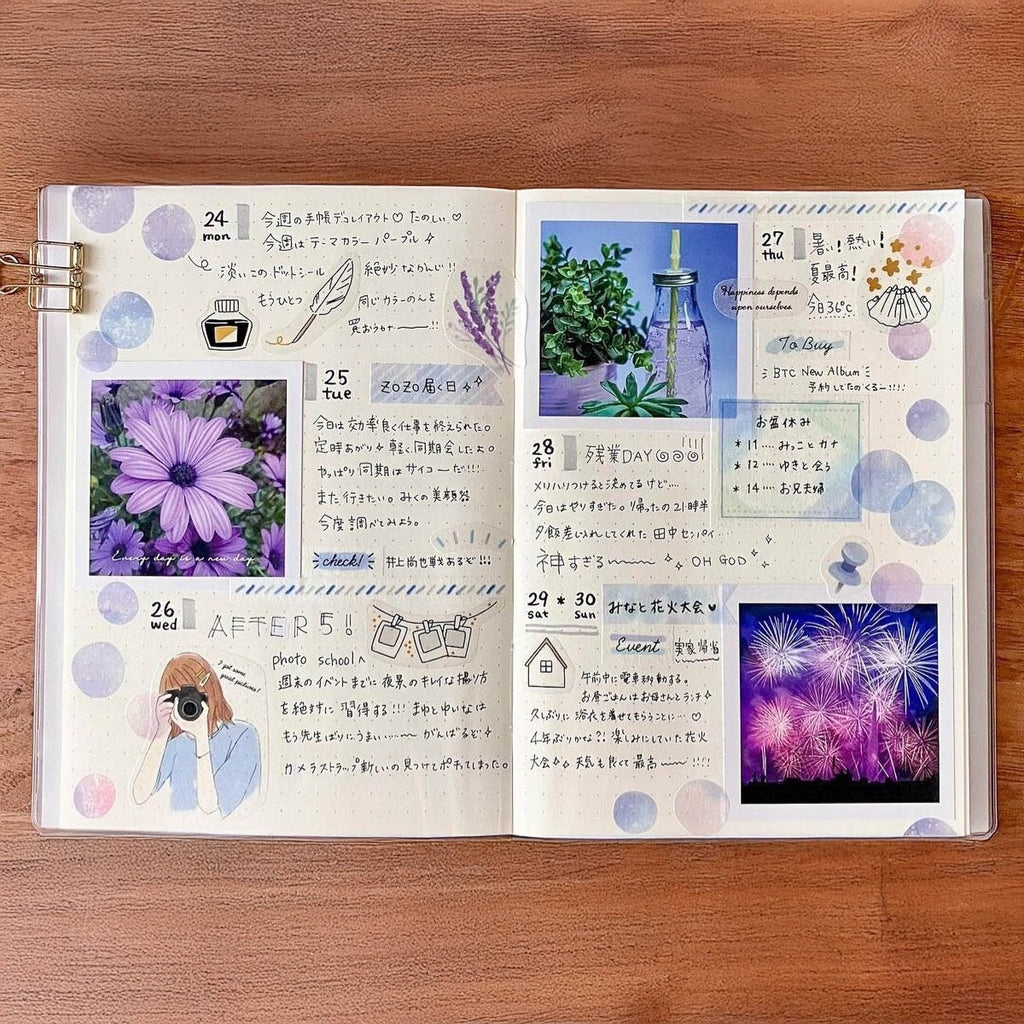 24
mon
今週の手帳デコレイアウト♡ たのしい♡
今週はテーマカラー パープル
淡いこのドットシール 絶妙なかんじ!!
もうひとつ 同じカラーのんを
買おうかナー!!
25
tue
ZOZO届く日
今日は効率良く仕事を終えられた。
定時あがり 軽く同期会したよ。
やっぱり同期はサイコーだ!!!
また行きたい。みくの美顔器
今度調べてみよう。
check!
井上尚也戦あるぞ!!!
Every day is a new day.
26
wed
AFTER5!!
photo schoolへ
週末のイベントまでに夜景のキレイな撮り方
を絶対に習得する!!! まゆとゆいなは
もう先生ばりにうまい…… がんばるぞ
カメラストラップ新しいの見つけてポチってしまった。
I got some
great pictures!
27
thu
暑い! 熱い!
夏最高!
今日36℃
Happiness depends
upon ourselves.
To Buy
BTC New Album
予約してたのくるー!!!!
お盆休み
* 11 …… みっことカナ
* 12 …… ゆきと会う
* 14 …… お兄夫婦
28
fri
残業DAY
メリハリつけると決めてるけど……
今日はやりすぎた。帰ったの21時半
夕飯差し入れしてくれた 田中センパイ…
神すぎる OH GOD
29 * 30
sat sun
みなと花火大会♥
Event
実家帰省
午前中に電車移動する。
お昼ごはんはお母さんとランチ
久しぶりに浴衣を着せてもらうことに…♡
4年ぶりかな?! 楽しみにしていた花火
大会 天気も良くて最高 !!!!